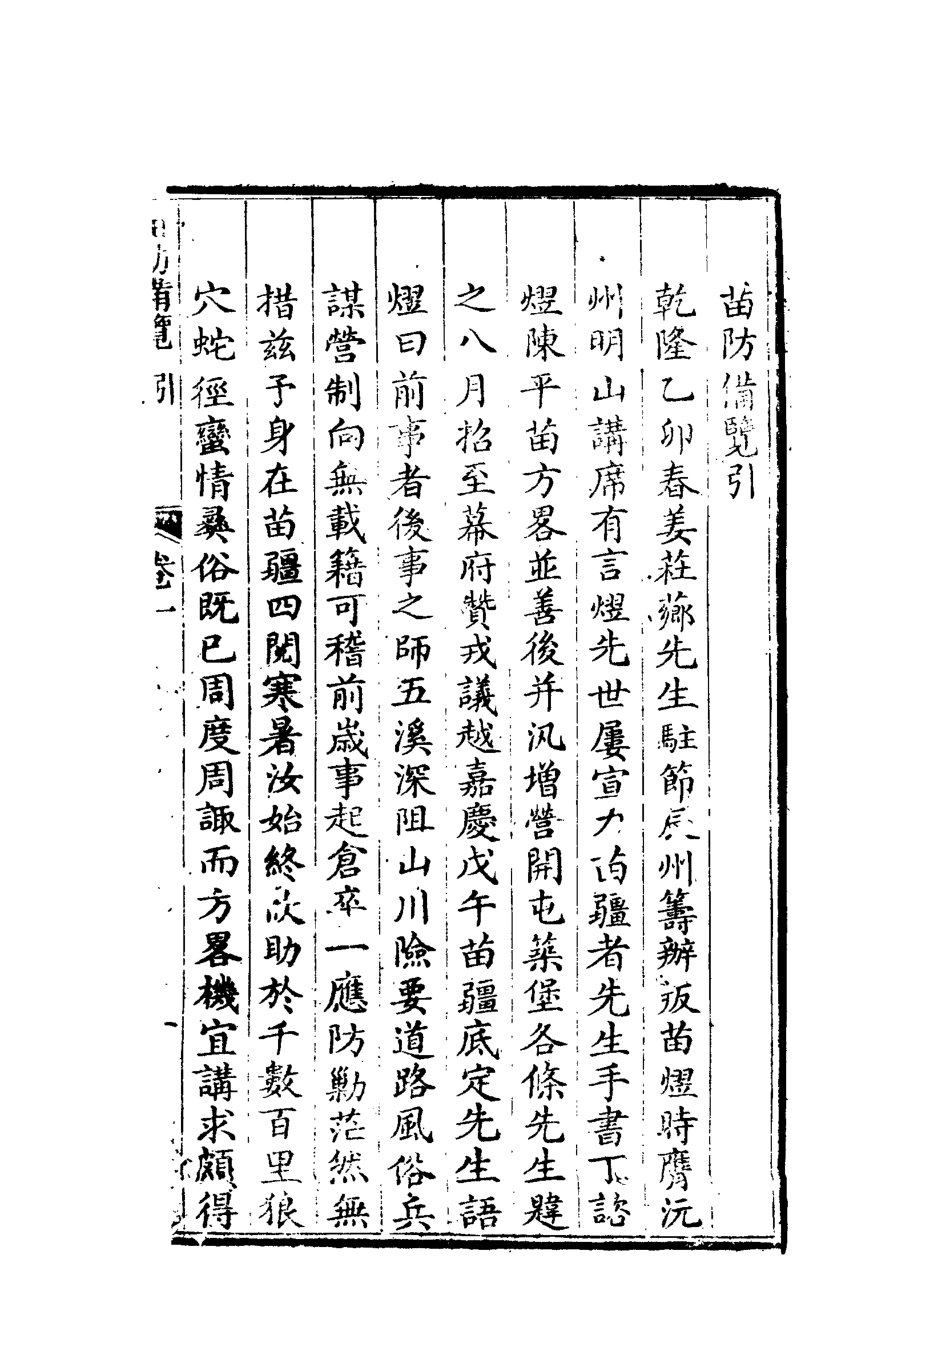 苗防備覽引
乾隆乙卯春姜莊薌先生駐節辰州籌辦叛苗熤時膺沅
州明山講席有言熤先世屢宣力苗疆者先生手書下諮
熤陳平苗方畧並善後并汛增營開屯築堡各條先生韙
之八月招至幕府贊戎議越嘉慶戊午苗疆底定先生語
熤曰前事者後事之師五溪深阻山川險要道路風俗兵
謀營制向無載籍可稽前嵗事起倉卒一應防勦茫然無
措兹予身在苗疆四閱寒暑汝始終佽助於千數百里狼
穴蛇徑蠻情彝俗既已周度周諏而方畧機宜講求頗得
防備覽 引 卷一